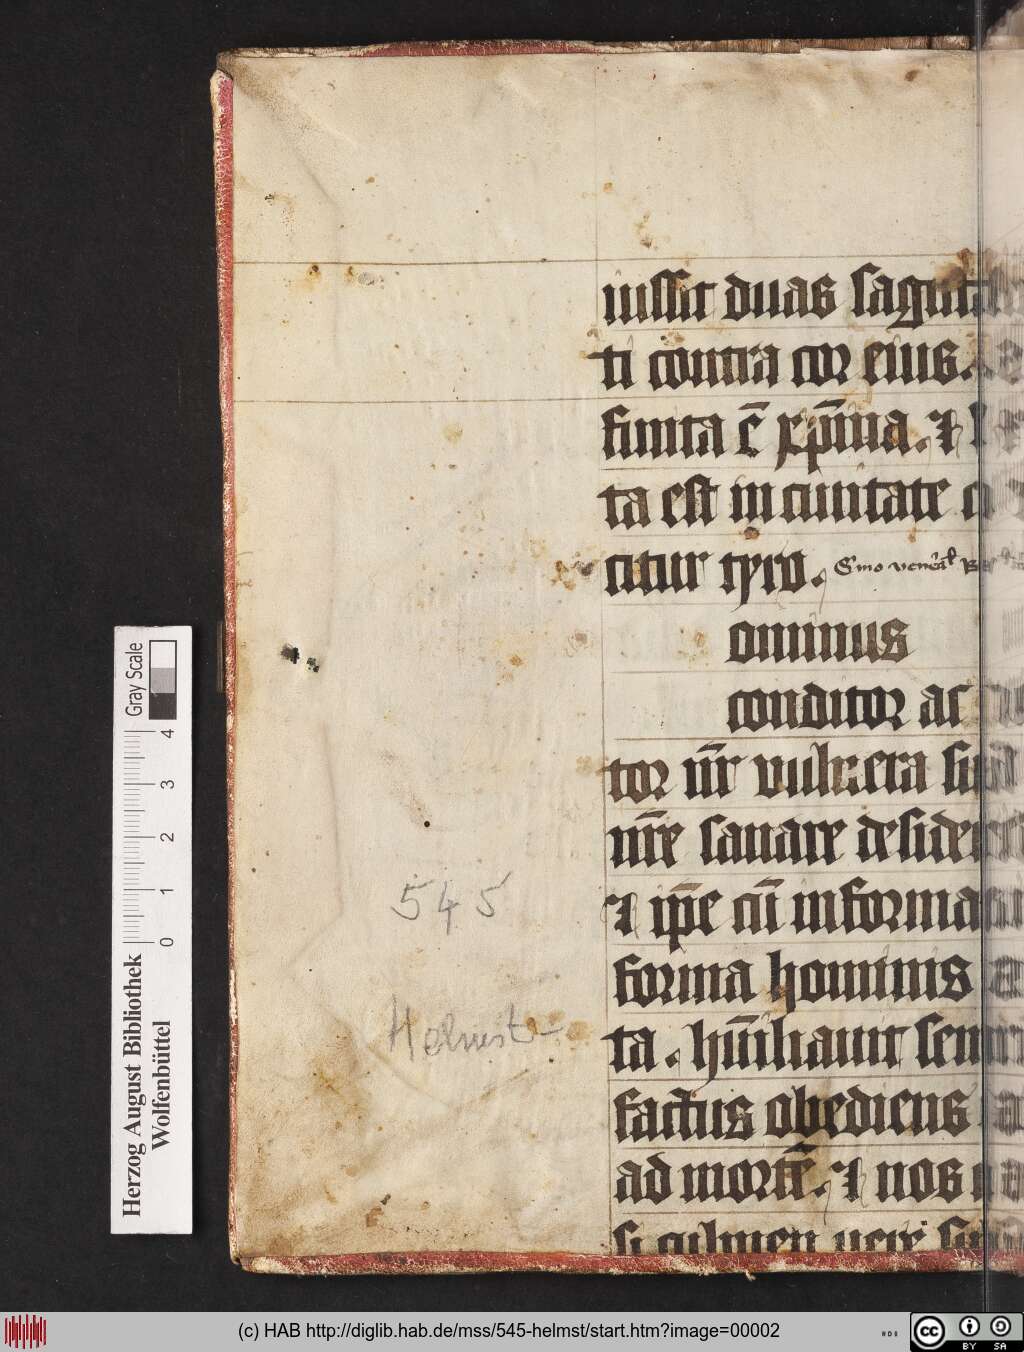 iussit duas sagittas
ti contra cor eius.
finita ē xp̄ina. ⁊
ta est in ciuitate
citur tyro. Smo
ominus
conditor ac
tor nr̄ vulnera
nr̄e sanare
⁊ ip̄e cū in forma
forma hominis
ta. hūiliauit sem
factus obediens
ad mortē. ⁊ nos
si culmen vere
545
Helmst
Herzog August Bibliothek
Wolfenbüttel
0 1 2 3 4
Gray Scale
(c) HAB http://diglib.hab.de/mss/545-helmst/start.htm?image=00002
cc BY SA